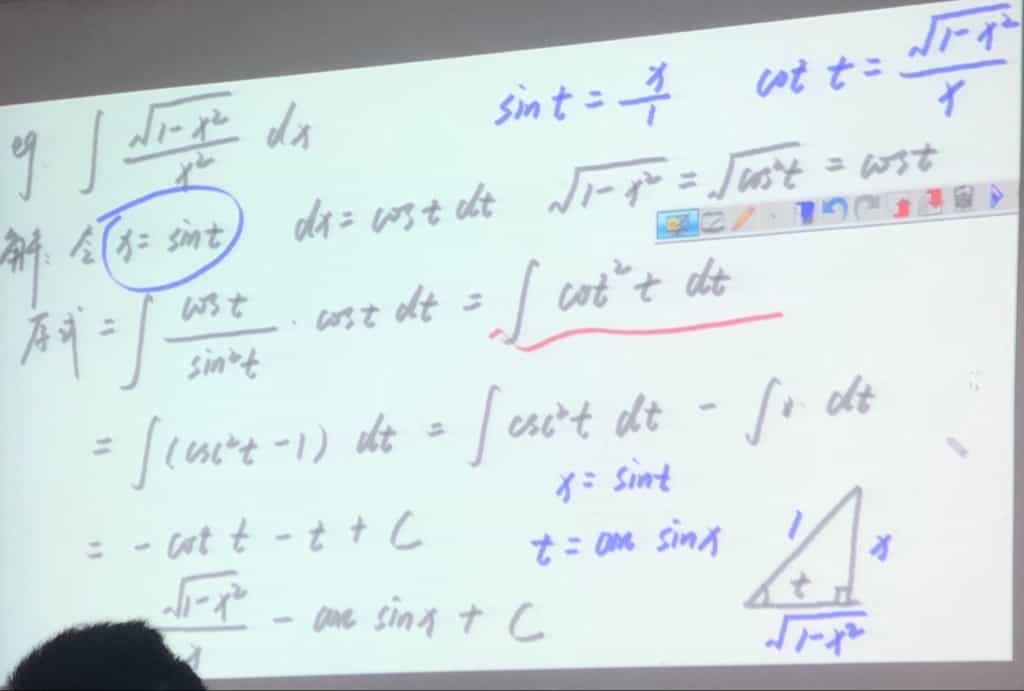 sin t = x/1 cot t = √(1-x²)/x
eg ∫ √(1-x²)/x² dx
解: 令 x = sin t dx = cos t dt √(1-x²) = √(cos²t) = cos t
原式 = ∫ cos t/sin²t · cos t dt = ∫ cot² t dt
= ∫ (csc²t - 1) dt = ∫ csc²t dt - ∫ 1· dt
x = sin t
= - cot t - t + C t = arc sin x
1 x t √(1-x²)
√(1-x²)/x - arc sin x + C